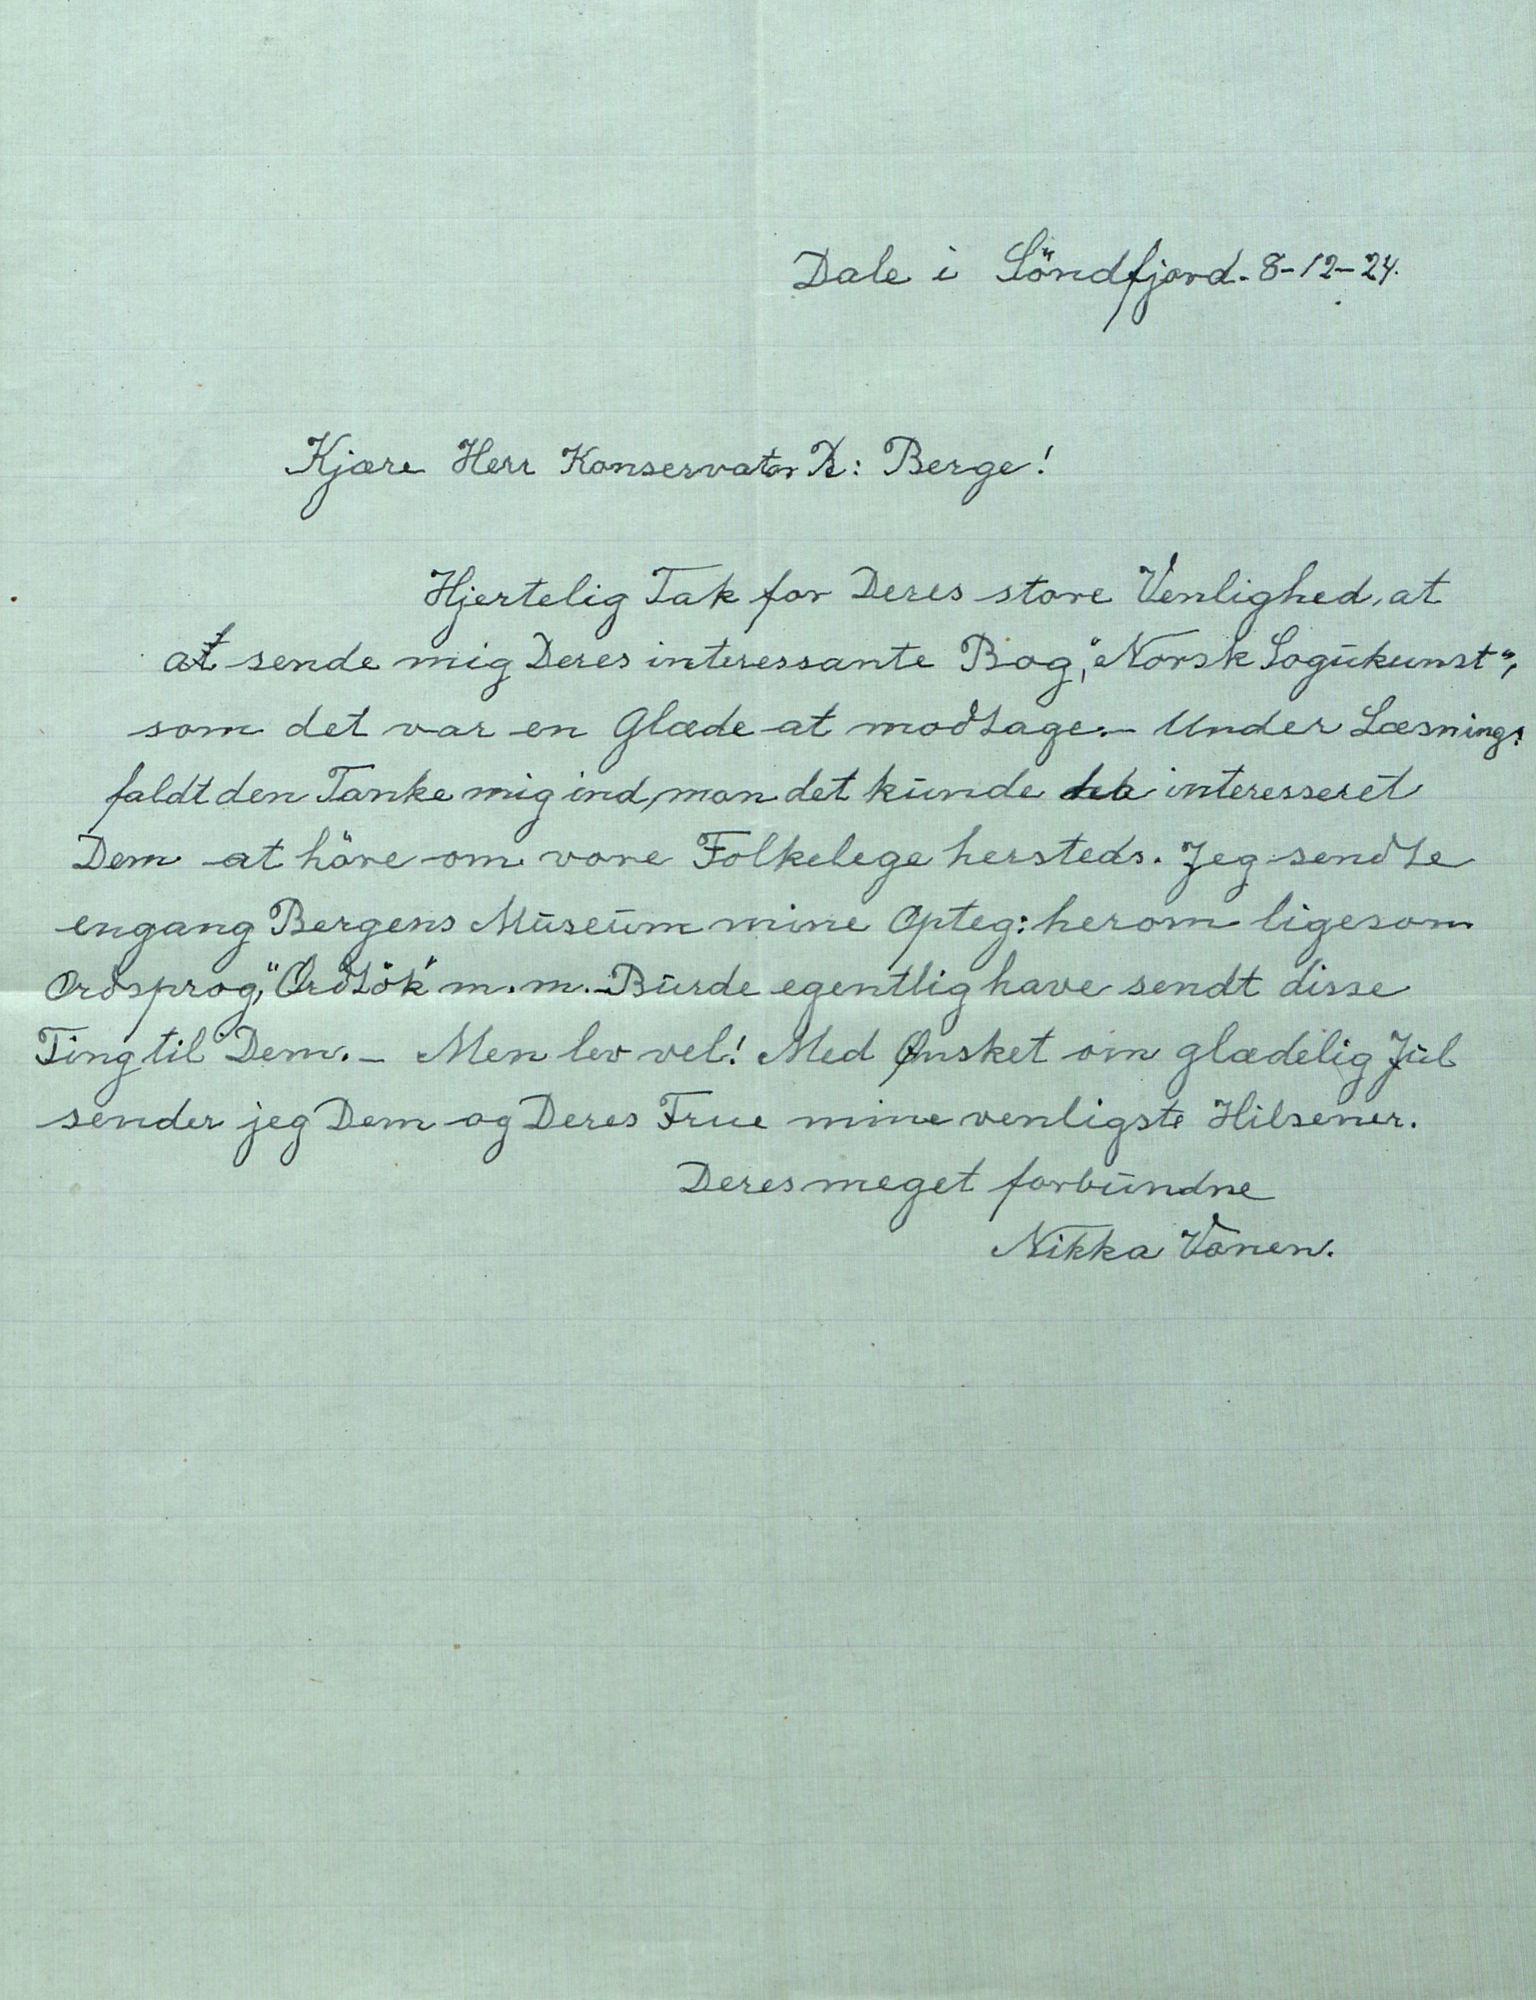 Dale i Söndfjord. 8-12-24.
Kjære Herr Konservator R: Berge!
Hjertelig Tak for Deres store Venlighed, at
at sende mig Deres interessante Bog, "Norsk Sogukunst",
som det var en Glæde at modtage.- Under Læsning:
faldt den Tanke mig ind, mon det kunde ha interesseret
Dem at höre om vore Folkelege hersteds. Jeg sendte
engang Bergens Museum mine Opteg: herom ligesom
Ordsprog, "Ordtök" m.m.- Burde egentlig have sendt disse
Ting til Dem.- Men lev vel! Med Ønsket om glædelig Jul
sender jeg Dem og Deres Frue mine venligste Hilsener.
Deres meget forbundne
Nikka Vonen.